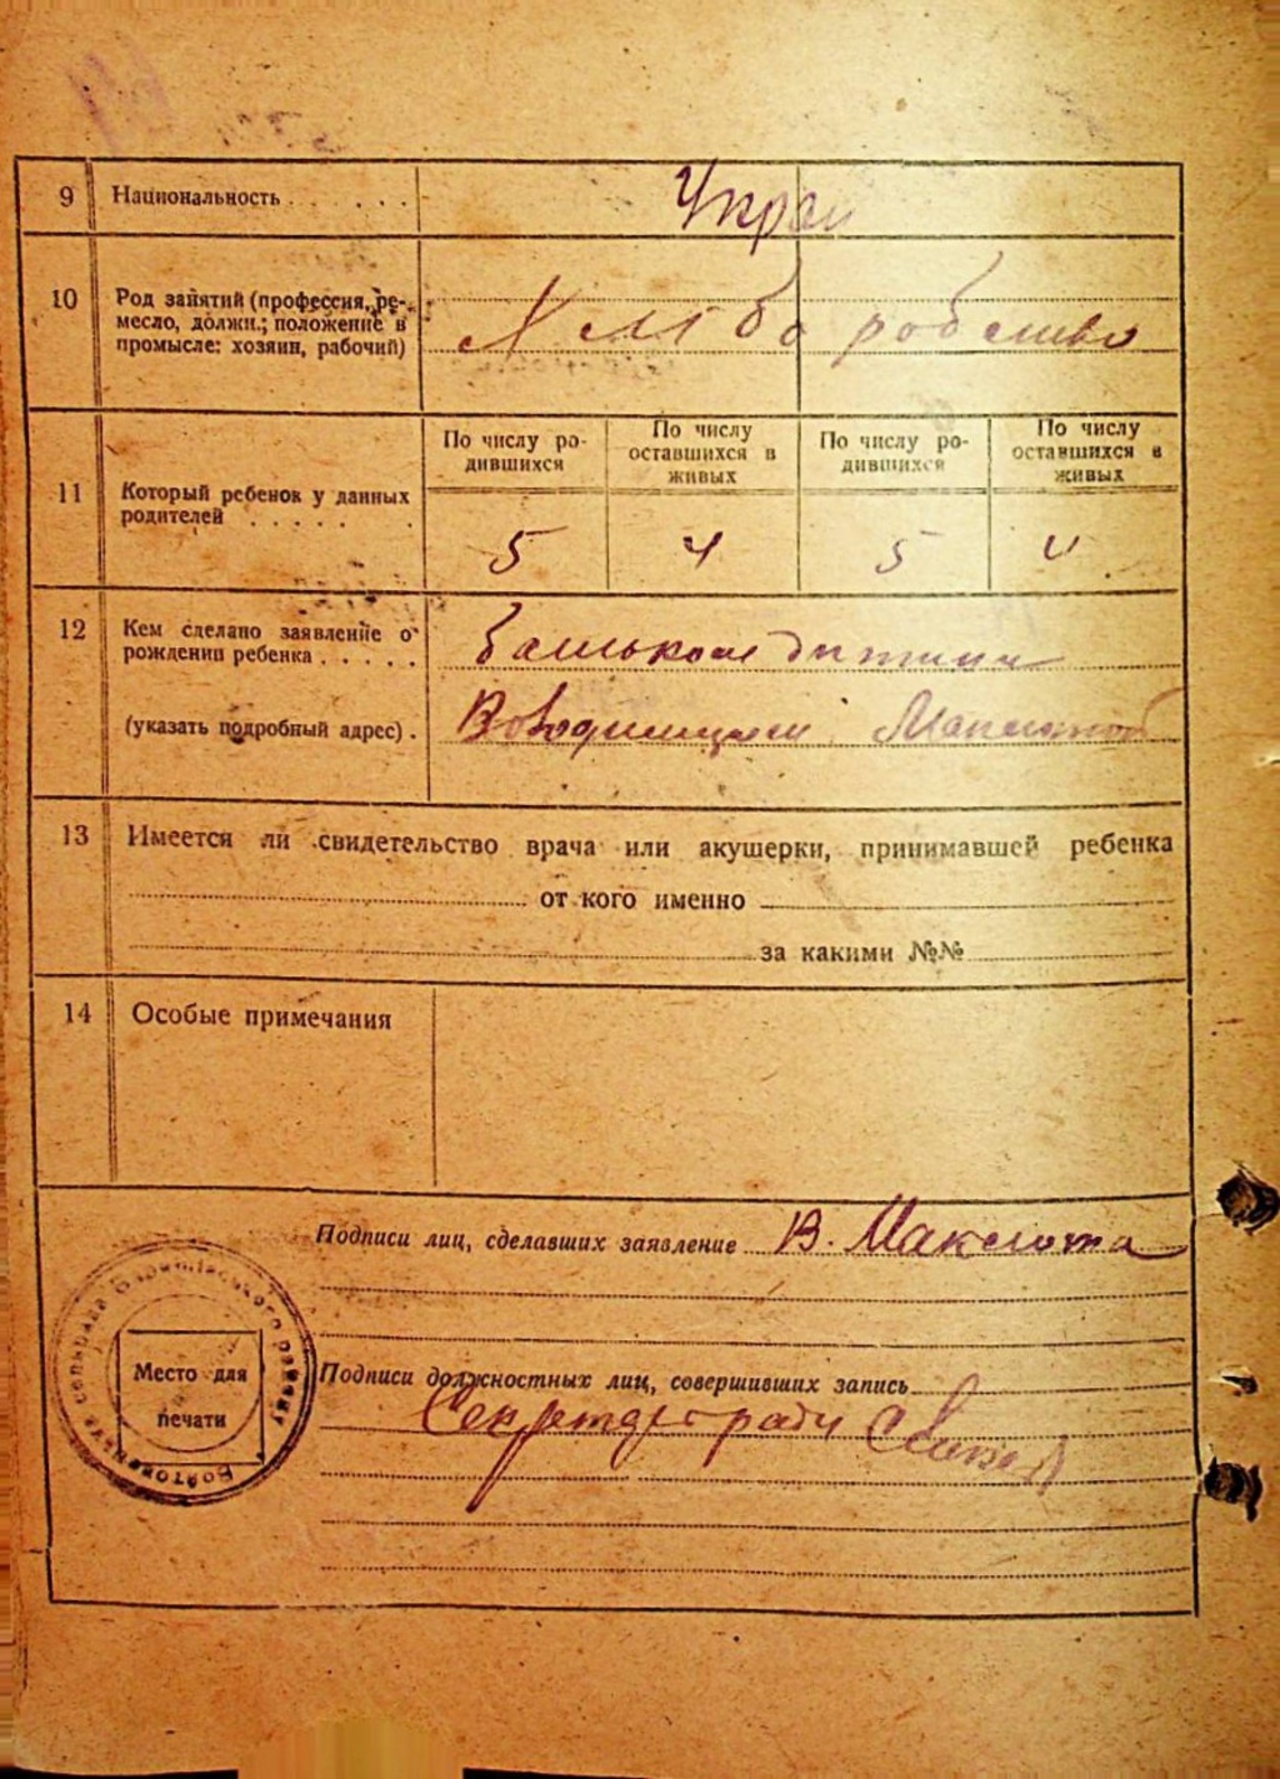 9 Национальность . . . . . . Украи
10 Род занятий (профессия, ре-
месло, должн.; положение в
промысле: хозяин, рабочий)
Хлібо робство
11 Который ребенок у данных
родителей . . . . . .
По числу ро-
дившихся
По числу
оставшихся в
живых
По числу ро-
дившихся
По числу
оставшихся в
живых
5 4 5 4
12 Кем сделано заявление о
рождении ребенка . . . . .
батьком дитини
(указать подробный адрес) .
13 Имеется ли свидетельство врача или акушерки, принимавшей ребенка
от кого именно
за какими №№
14 Особые примечания
Подписи лиц, сделавших заявление В. Максюта
Место для
печати
Подписи должностных лиц, совершивших запись
Секретар ради